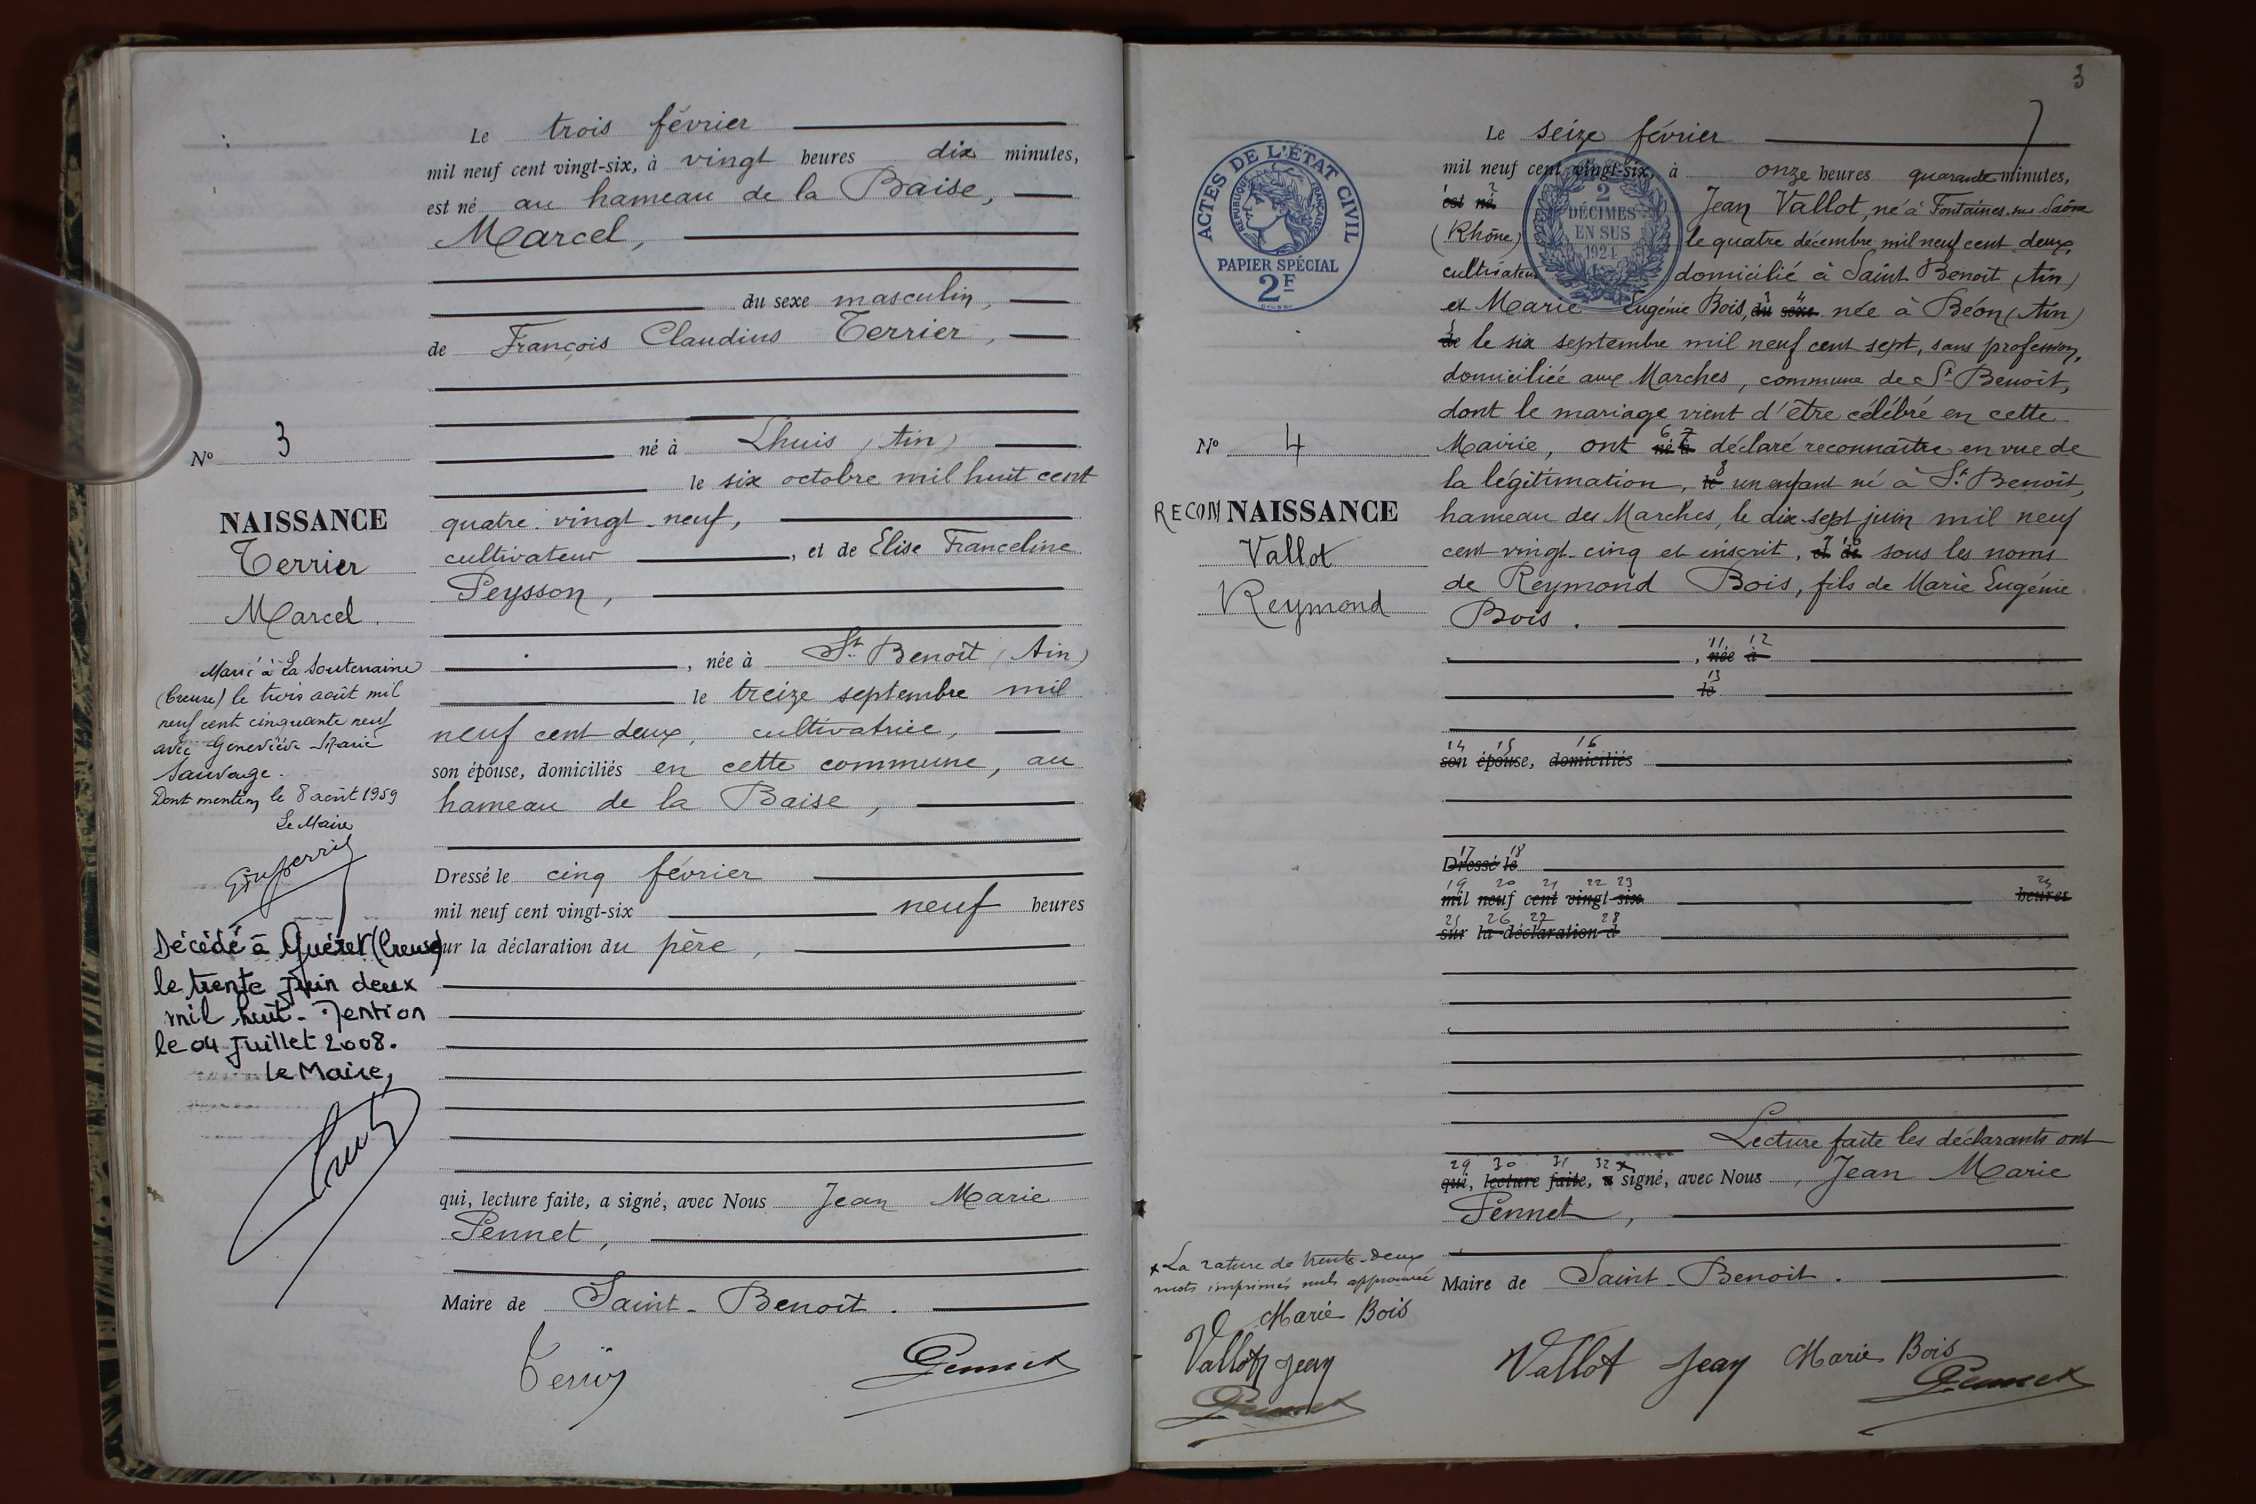 Le trois février
mil neuf cent vingt-six, à vingt heures dix minutes,
est né au hameau de la Baise,
Marcel,
du sexe masculin,
de François Claudius Terrier,
né à Lhuis (Ain)
le six octobre mil huit cent
quatre-vingt-neuf,
cultivateur, et de Elise Franceline
Peysson,
, née à St Benoît (Ain)
le treize septembre mil
neuf cent deux, cultivatrice,
son épouse, domiciliés en cette commune, au
hameau de la Baise,
Dressé le cinq février
mil neuf cent vingt-six neuf heures
sur la déclaration du père,
qui, lecture faite, a signé, avec Nous Jean Marie
Pennet,
Maire de Saint-Benoit.
Pennet
No 3
NAISSANCE
Terrier
Marcel.
Marié à La Souterraine
(Creuse) le trois août mil
neuf cent cinquante neuf
avec Geneviève Marie
Sauvage.
Dont mention le 8 août 1959
Le Maire
Décédé à Guéret (Creuse)
le trente Juin deux
mil huit. Mention
le 04 Juillet 2008.
le Maire,
3
7
ACTES DE L'ÉTAT CIVIL
RÉPUBLIQUE FRANÇAISE
PAPIER SPÉCIAL
2F
2
DÉCIMES
EN SUS
1924
Le seize février
mil neuf cent vingt-six, à onze heures quarante minutes,
est né Jean Vallot, né à Fontaines-sur-Saône
(Rhône) le quatre décembre mil neuf cent deux,
cultivateur domicilié à Saint Benoit (Ain)
et Marie Eugénie Bois, du sexe née à Béon (Ain)
de le six septembre mil neuf cent sept, sans profession,
domiciliée aux Marches, commune de St Benoit,
dont le mariage vient d'être célébré en cette
Mairie, ont né à déclaré reconnaître en vue de
la légitimation, le un enfant né à St Benoit,
hameau des Marches, le dix-sept juin mil neuf
cent vingt-cinq et inscrit, et de sous les noms
de Reymond Bois, fils de Marie Eugénie
Bois.
11 12
, née à
13
le
14 15 16
son épouse, domiciliés
17 18
Dressé le
19 20 21 22 23 24
mil neuf cent vingt-six heures
25 26 27 28
sur la déclaration d
Lecture faite les déclarants ont
29 30 31 32 x
qui, lecture faite, a signé, avec Nous, Jean Marie
Pennet,
Maire de Saint-Benoit.
Vallot Jean Marie Bois
Pennet
No 4
RECONNAISSANCE
Vallot
Reymond
x La rature de trente-deux
mots imprimés nuls approuvée
Marie Bois
Vallot Jean
Pennet